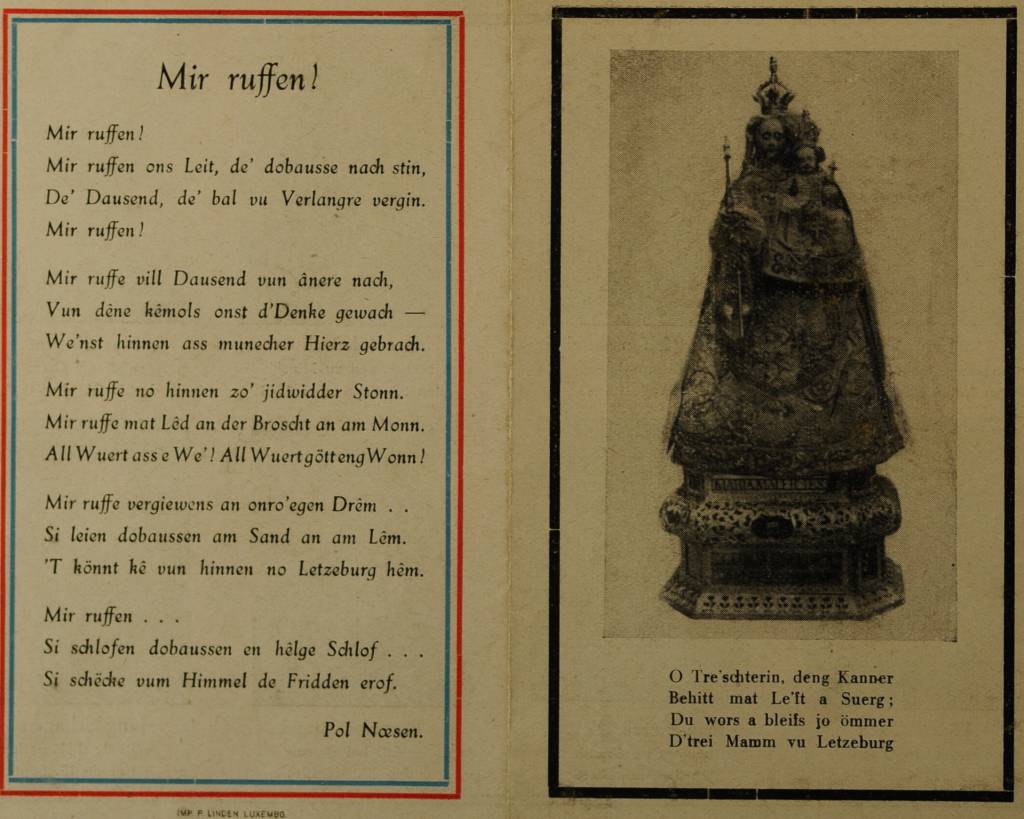 Mir ruffen!
Mir ruffen!
Mir ruffen ons Leit, de' dobausse nach stin,
De' Dausend, de' bal vu Verlangre vergin.
Mir ruffen!
Mir ruffe vill Dausend vun ânere nach,
Vun dêne kêmols onst d'Denke gewach —
We'nst hinnen ass munecher Hierz gebrach.
Mir ruffe no hinnen zo' jidwidder Stonn.
Mir ruffe mat Lêd an der Broscht an am Monn.
All Wuert ass e We'! All Wuert gött eng Wonn!
Mir ruffe vergiewens an onro'egen Drêm . .
Si leien dobaussen am Sand an am Lêm.
'T könnt kê vun hinnen no Letzeburg hêm.
Mir ruffen . . .
Si schlofen dobaussen en hêlge Schlof . . .
Si schécke vum Himmel de Fridden erof.
Pol Nœsen.
IMP. P. LINDEN, LUXEMBG.
O Tre'schterin, deng Kanner
Behitt mat Le'ft a Suerg;
Du wors a bleifs jo ömmer
D'trei Mamm vu Letzeburg